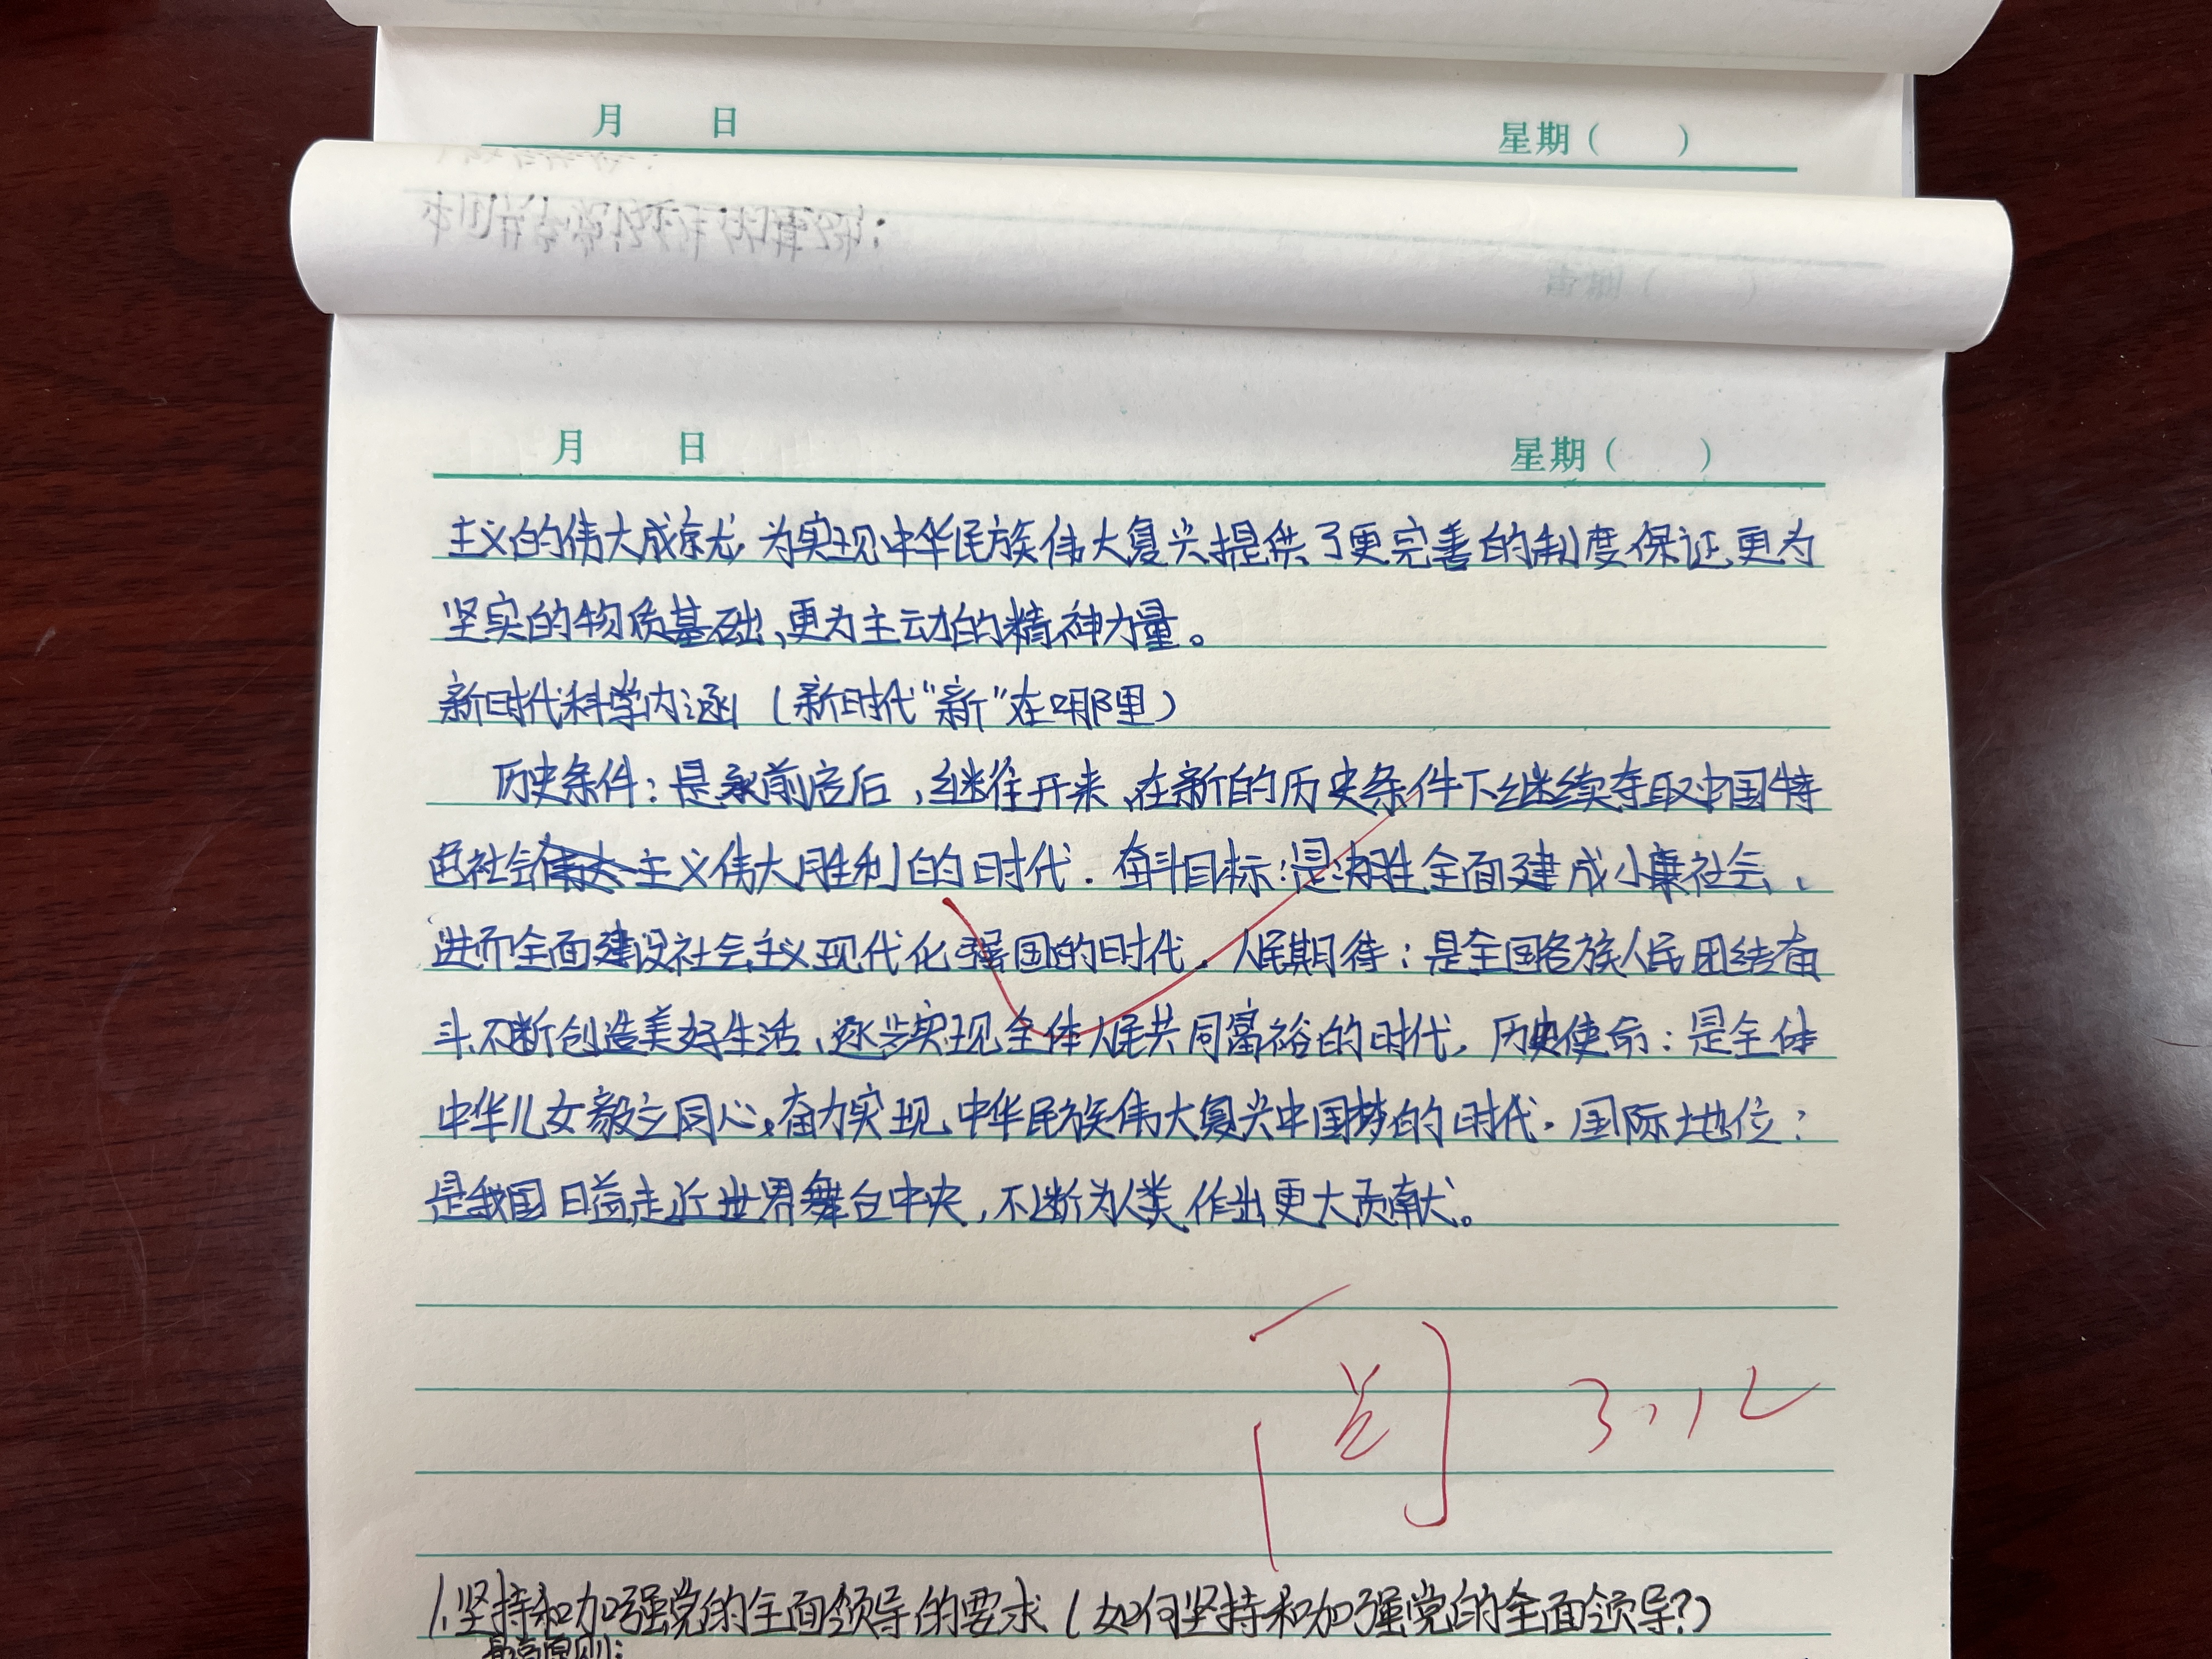 月 日 星期( )
月 日 星期( )
主义的伟大成就,为实现中华民族伟大复兴提供了更完善的制度保证、更为
坚实的物质基础、更为主动的精神力量。
新时代科学内涵(新时代“新”在哪里)
历史条件:是承前启后,继往开来、在新的历史条件下继续夺取中国特
色社会主义伟大胜利的时代.奋斗目标:是决胜全面建成小康社会、
进而全面建设社会主义现代化强国的时代.人民期待:是全国各族人民团结奋
斗、不断创造美好生活、逐步实现全体人民共同富裕的时代,历史使命:是全体
中华儿女毅立同心,奋力实现中华民族伟大复兴中国梦的时代.国际地位:
是我国日益走近世界舞台中央,不断为人类作出更大贡献。
阅 3.12
1.坚持和加强党的全面领导的要求(如何坚持和加强党的全面领导?)
最高原则: